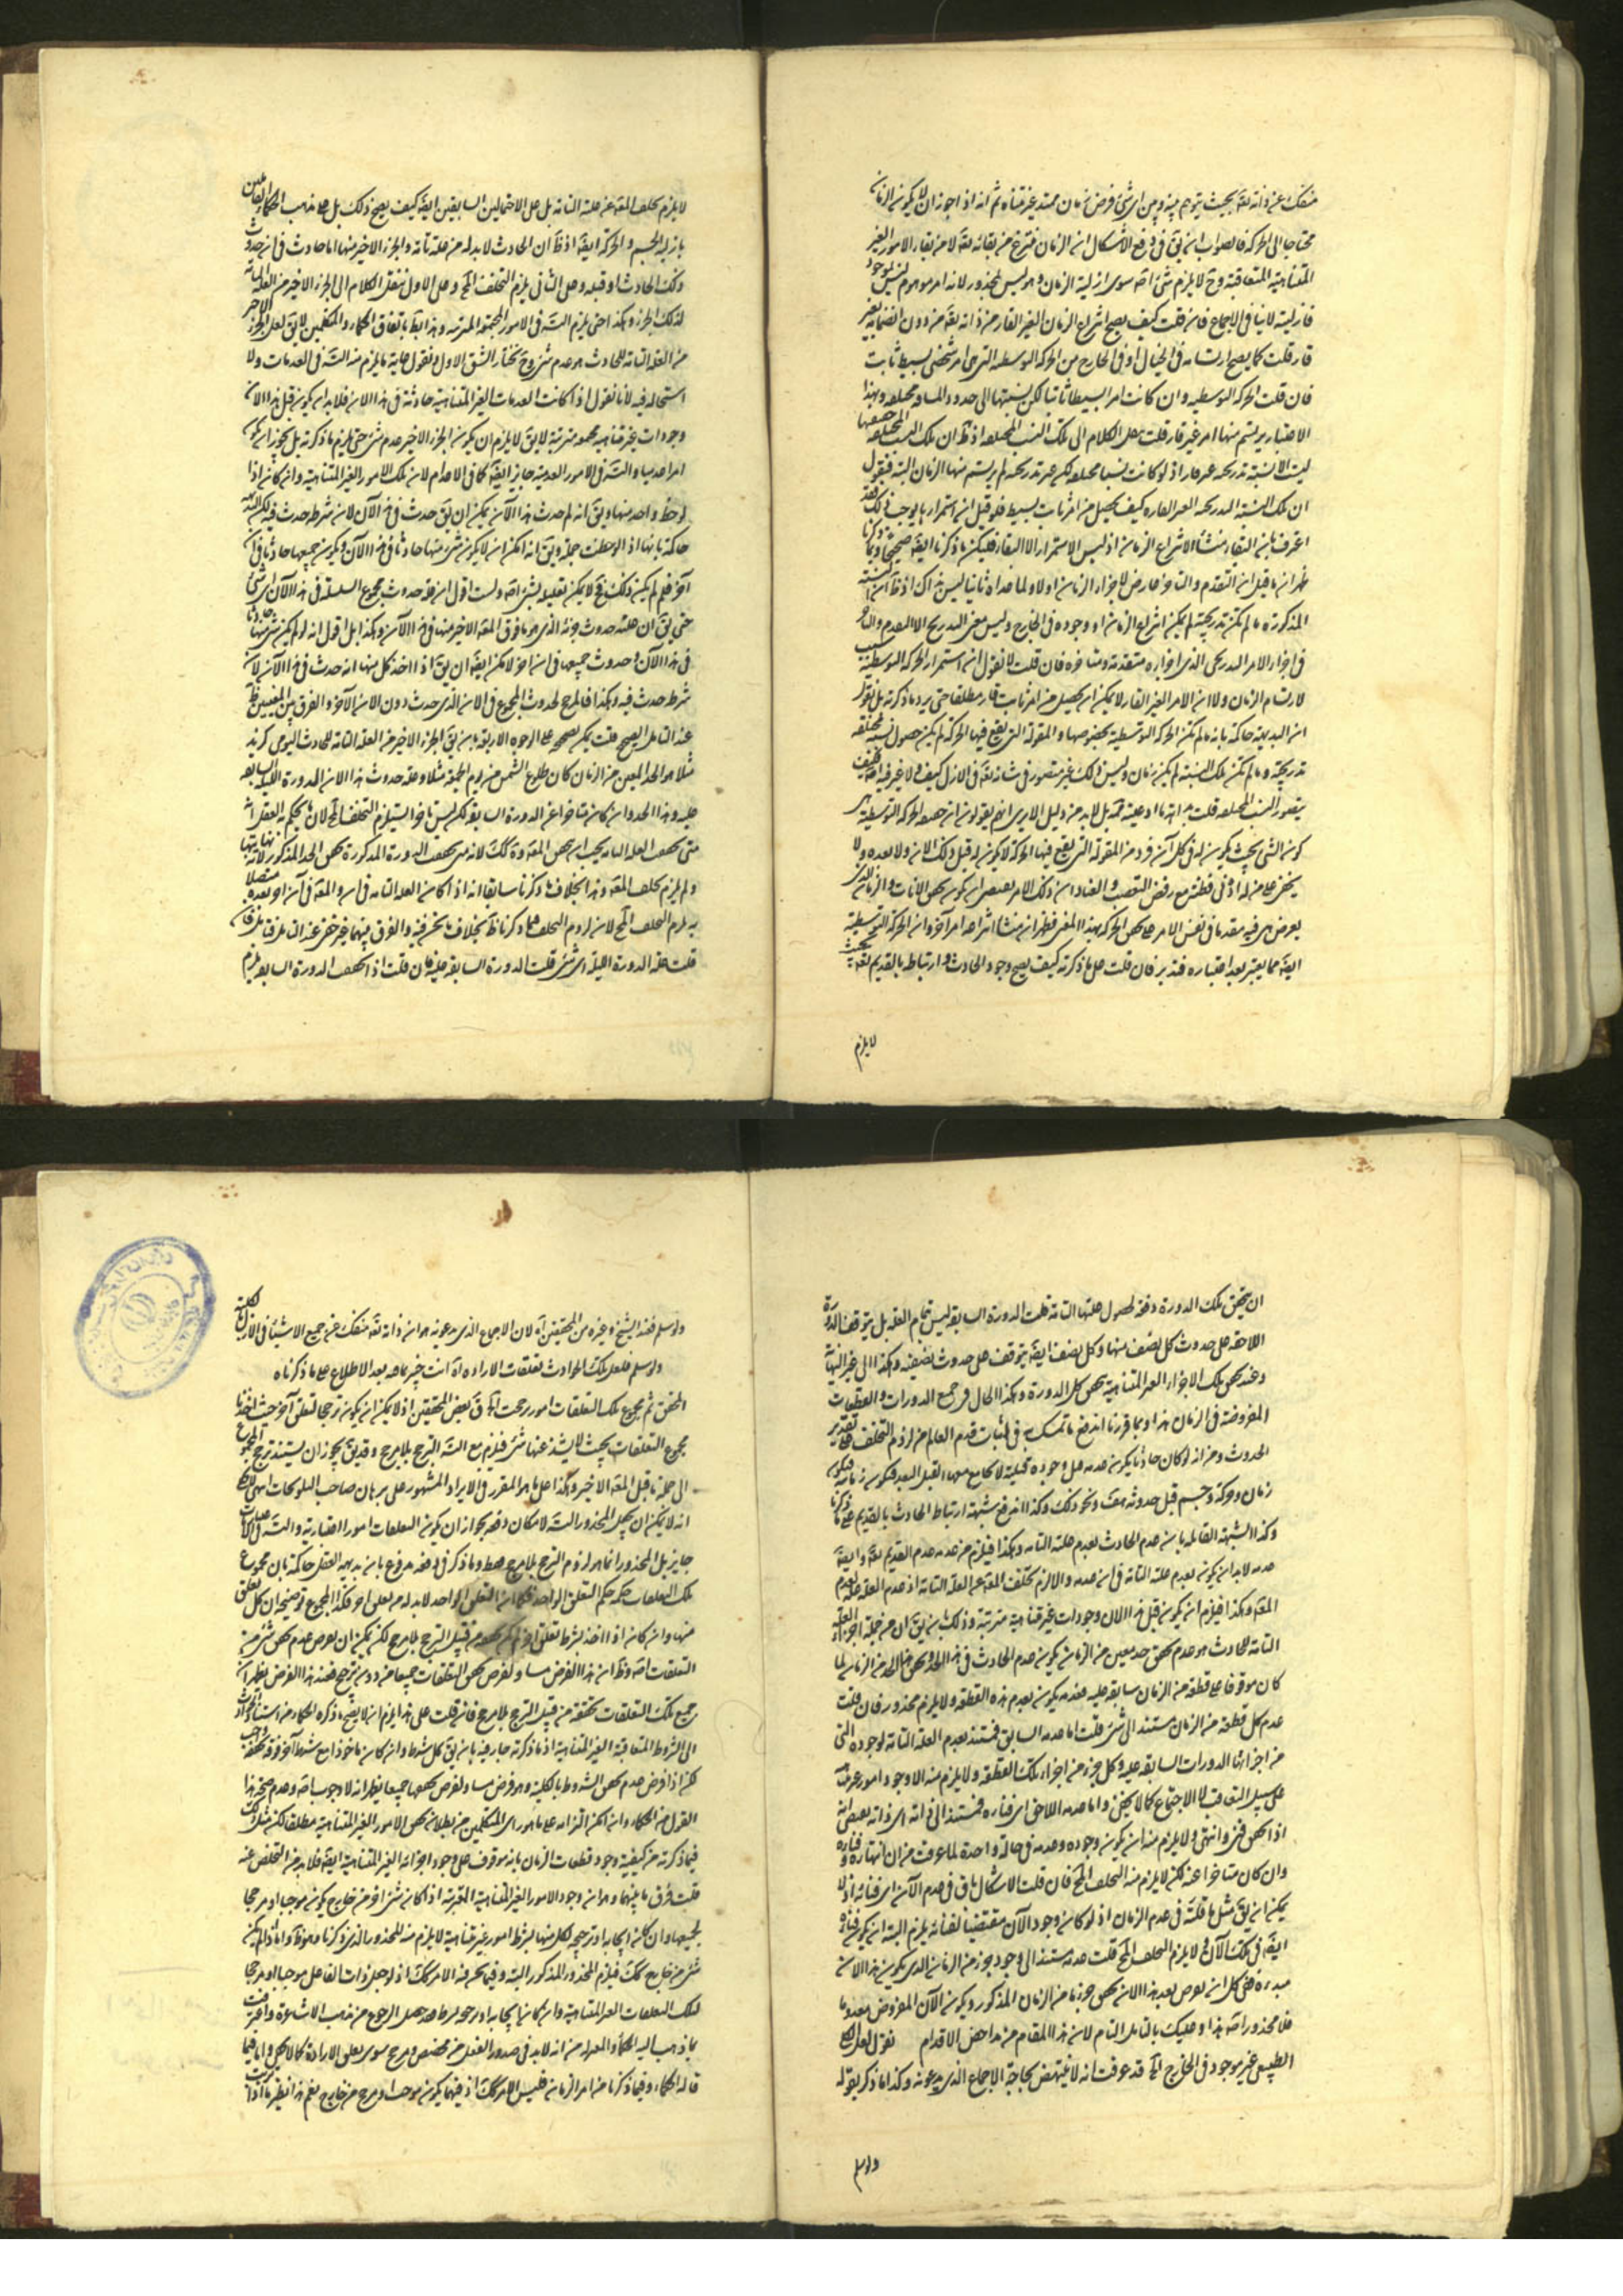 منفك عنه ذاته تعالى بحيث يتوهم بينه وبين اى شئ فرض زمان ممتد غير متناه ثم انه اذا جوز ان لا يكون الزمان
محتاجا الى الحركة فالصواب ان يق فى دفع الاشكال ان الزمان منتزع من بقائه تعالى لا من بقاء الامور الغير
المتناهية المتعاقبة وح لا يلزم شئ اصلا سوى ازلية الزمان وهو ليس بمحذور لانه امر موهوم ليس بموجود
فازليته لا ينافى الاجماع فان قلت كيف يصح انتزاع الزمان الغير القار من ذاته تعالى من دون انضمام
قار قلت كما يصح ارتسامه فى الخيال او فى الخارج من الحركة التوسطية التى هى امر شخصى بسيط ثابت
فان قلت الحركة التوسطية وان كانت امرا بسيطا ثابتا لكن نسبتها الى حدود المسافة مختلفة وبهذا
الاعتبار يرتسم منها امر غير قار قلت ننقل الكلام الى تلك النسب المختلفة اذ ظ ان تلك النسب المختلفة
ليست الا نسبة تدريجية غير قارة اذ لو كانت نسبا مختلفة لكن غير تدريجية لم يرتسم منها الزمان البتة فنقول
ان تلك النسبة التدريجية الغير القارة كيف يحصل من امر ثابت بسيط فلو قيل ان استمرارها يوجب ذلك فقد
اعترف بان البقاء منشأ لانتزاع الزمان اذ ليس الاستمرار الا البقاء فليكن ما ذكرنا ايضا صحيحا وبما ذكرنا
ظهر ان ما قيل ان التقدم والتأخر عارض لاجزاء الزمان اولا ولما عداه ثانيا ليس بذاك اذ ظ ان النسبة
المذكورة ما لم تكن تدريجية لم يمكن انتزاع الزمان او وجوده فى الخارج وليس معنى التدريج الا التقدم والتأخر
فى اجزاء الامر التدريجى الذى اجزاؤه متقدمة ومتأخرة فان قلت لا نقول ان استمرار الحركة التوسطية سبب
لارتسام الزمان ولا ان الامر الغير القار لا يمكن ان يحصل من امر ثابت قار مطلقا حتى يرد ما ذكرته بل نقول
ان البديهة حاكمة بانه ما لم تكن الحركة التوسطية بخصوصها والمقولة التى يقع فيها الحركة لم يكن حصول نسبة مختلفة
تدريجية وما لم تكن تلك النسبة لم يكن زمان وليس ذلك غير متصور فى شأنه تعالى فى الازل كيف ولا غير فيه اصلا فكيف
يتصور النسب المختلفة قلت بداهة ما ادعيته ثمة بل لا بد من دليل الا يرى انهم يقولون ان حقيقة الحركة التوسطية هى
كون الشئ بحيث يكون له فى كل آن فرد من المقولة التى يقع فيها الحركة لا يكون له قبل ذلك الآن ولا بعده ولا
يخفى على من له ادنى فطنة مع رفض التعصب والعناد ان ذلك الامر يقتضى ان يكون تحقق الآنات والزمان الذى
يعرض هى فيه مقدما فى نفس الامر على تحقق الحركة بهذا المعنى فظهر ان منشأ انتزاعه امر آخر وان الحركة التوسطية
ايضا مما يعتبر بعد اعتباره فتدبر فان قلت على ما ذكرته كيف يصح وجود الحادث وارتباطه بالقديم تعالى بحيث
لا يلزم
لا يلزم تخلف المعلول عن علته التامة بل على الاحتمالين السابقين ايضا كيف يصح ذلك بل على مذهب الحكماء القائلين
بازلية الجسم والحركة ايضا اذ ظ ان الحادث لا بد له من علة تامة والجزء الاخير منها اما حادث فى آن حدوث
ذلك الحادث او قبله وعلى الثانى يلزم التخلف المح وعلى الاول ننقل الكلام الى الجزء الاخير من العلة التامة
لذلك الجزء وهكذا حتى يلزم التسلسل فى الامور المجتمعة المترتبة وهذا باطل باتفاق الحكماء والمتكلمين لا يق لعل الجزء الاخير
من العلة التامة للحادث هو عدم شئ وح نختار الشق الاول ونقول غاية ما يلزم منه التسلسل فى العدمات ولا
استحالة فيه لانا نقول اذا كانت العدمات الغير المتناهية حادثة فى هذا الآن فلا بد ان يكون قبل هذا الآن
وجودات غير متناهية مجتمعة مترتبة لا يق لا يلزم ان يكون الجزء الاخير عدم شئ حتى يلزم ما ذكرته بل يجوز ان يكون
امرا عدميا والتسلسل فى الامور العدمية جايز ايضا كما فى الاعدام لان تلك الامور الغير المتناهية وان كان اذا
لوحظ واحد منها ويق انه لم حدث هذا الآن يمكن ان يق حدث فى هذا الآن لان شرطه حدث فيه لكن البديهة
حاكمة بانها اذا لوحظت جملة ويق انه امكن ان لا يكون شئ منها حادثا فى هذا الآن ويكون جميعها حادثا فى آن
آخر فلم لم يكن ذلك فح لا يمكن تعليله بشئ اصلا ولست اقول ان علة حدوث مجموع السلسلة فى هذا الآن اى شئ
حتى يق ان علته حدوث جزئه الذى هو ما فوق المعلول الاخير منها فى هذا الآن وهكذا بل اقول انه لو لم يكن شئ منها حادثا
فى هذا الآن وحدوث جميعها فى آن آخر لامكن ايضا ان يق اذا اخذ كل منها انه حدث فى هذا الآن لان
شرطه حدث فيه وهكذا فما المرجح لحدوث المجموع فى الآن الذى حدث دون الآن الآخر والفرق بين المعنيين ظ
عند التأمل الصحيح قلت يمكن تصحيحه على الوجوه الاربعة بان يق الجزء الاخير من العلة التامة للحادث اليومى كزيد
مثلا هو الحد المعين من الزمان كان طلوع الشمس من يوم الجمعة مثلا وعلة حدوث هذا الآن الدورة الفلكية السابقة
عليه وهذا الحد وان كان متأخرا عن الدورة السابقة لكن ليس تأخرا يستلزم التخلف المح لان ما يحكم به العقل انه
متى تحقق العلة التامة يجب ان يتحقق المعلول وهذا كذلك لانه متى تحققت الدورة المذكورة تحقق الحد المذكور لانه نهايتها
ولم يلزم تخلف المعلول وهذا بخلاف ما ذكرنا سابقا انه اذا كان العلة التامة فى آن والمعلول فى آن آخر بعده متصلا
به يلزم التخلف المح لان لزوم التخلف مما ذكرنا ظ بخلاف ما نحن فيه والفرق بينهما غير خفى عند التأمل فتأمل فان
قلت علة الدورة الفلكية اى شئ قلت الدورة السابقة عليه فان قلت اذا تحقق الدورة السابقة يلزم
ان يتحقق تلك الدورة دفعة لحصول علتها التامة قلت الدورة السابقة ليس تمام العلة بل يتوقف الدورة
اللاحقة على حدوث كل نصف منها وكل نصف ايضا يتوقف على حدوث نصفه وهكذا الى غير النهاية
وعند تحقق تلك الاجزاء الغير المتناهية يتحقق كل الدورة وهكذا الحال فى جميع الدورات والقطعات
المفروضة فى الزمان هذا وبما قررنا اندفع ما تمسك به فى اثبات قدم العالم من لزوم التخلف على تقدير
الحدوث ومن انه لو كان حادثا يكون عدمه قبل وجوده قبلية لا يجامع معها القبل البعد فيكون زمانية فيكون
زمان وحركة وجسم قبل حدوثه هف ونحو ذلك وكذا اندفع شبهة ارتباط الحادث بالقديم على ما ذكرنا
وكذا الشبهة القائلة بان عدم الحادث لعدم علته التامة وهكذا فيلزم من عدمه عدم القديم تعالى وايضا
عدمه لا بد ان يكون لعدم علته التامة فى آن عدمه والا لزم تخلف المعلول عن العلة التامة اذ عدم العلة علة لعدم
المعلول وهكذا فيلزم ان يكون قبل هذا الآن وجودات غير متناهية مترتبة وذلك بان يق ان من جملة اجزاء العلة
التامة للحادث هو عدم تحقق حد معين من الزمان يكون عدم الحادث فى هذا الحد وتحقق هذا الحد من الزمان لما
كان موقوفا على قطعة من الزمان سابقة عليه فعدمه يكون بعدم هذه القطعة ولا يلزم محذور فان قلت
عدم كل قطعة من الزمان مستند الى شئ قلت اما عدمه السابق فمستند بعدم العلة التامة لوجوده التى
من اجزائها الدورات السابقة عليه وكل جزء من اجزاء تلك القطعة ولا يلزم منه الا وجود امور غير متناهية
على سبيل التعاقب لا الاجتماع كما لا يخفى واما عدمه اللاحق اى فناؤه فمستند الى ذاته اى ذاته يقتضى انه
اذا تحقق فنى وانتهى ولا يلزم منه ان يكون وجوده وعدمه فى حالة واحدة لما عرفت من ان انتهاءه وفناءه
وان كان متأخرا عنه لكن لا يلزم منه التخلف المح فان قلت الاشكال باق فى عدم الآن اى فنائه اذ لا
يمكن ان يق مثل ما قلته فى عدم الزمان اذ لو كان وجود الآن مقتضيا لفنائه يلزم البتة ان يكون فناؤه
ايضا فى تلك الآن ولا يلزم التخلف المح قلت عدمه مستند الى وجود جزء من الزمان الذى يكون هذا الآن
مبدءه ففى كل آن يعرض بعد هذا الآن تحقق جزء ما من الزمان المذكور ويكون الآن المفروض معدوما
فلا محذور اصلا هذا وعليك بالتأمل التام لان هذا المقام من مداحض الاقدام نقول لعل الكلى
الطبيعى غير موجود فى الخارج الخ قد عرفت انه لا ينتهض بحاجية الاجماع الذى يدعونه وكذا ما ذكر بقوله
ولو سلم
ولو سلم فعند الشيخ وغيره من المحققين آه لان الاجماع الذى يدعونه هو ان ذاته تعالى منفك عن جميع الاشياء فى الازل بالكلية
ولو سلم فلعل تلك الحوادث تعلقات الارادة آه انت خبير بما فيه بعد الاطلاع على ما ذكرناه
المحقق ثم مجموع تلك التعلقات امور رجحت الخ ق بعض المحققين اذ لا يمكن ان يكون ترجيحا لتعلق آخر حيث اخذنا
مجموع التعلقات بحيث لا يشذ عنها شئ فيلزم مع التسلسل الترجيح بلا مرجح وقد يق يجوز ان يستند ترجيح المجموع
الى جملة ما قبل المعلول الاخير وهكذا على ما هو المقرر فى الايراد المشهور على برهان صاحب التلويحات انتهى
انه لا يمكن ان يجعل المحذور التسلسل لامكان دفعه بجواز ان يكون التعلقات امورا اعتبارية والتسلسل فى الاعتباريات
جايز بل المحذور انما هو لزوم الترجيح بلا مرجح فقط وما ذكر فى دفعه مدفوع بان بديهة العقل حاكمة بان مجموع
تلك التعلقات حكمه حكم التعلق الواحد فكما ان التعلق الواحد لا بد له من تعلق آخر فكذا المجموع توضيحه ان كل تعلق
منها وان كان اذا اخذ بشرط تعلق آخر لم يكن تحققه من قبيل الترجيح بلا مرجح لكن يمكن ان يفرض عدم تحقق شئ من
التعلقات اصلا وظ ان هذا الفرض مساو لفرض تحقق التعلقات جميعا من دون ترجيح فعند هذا الفرض يظهر ان
جميع تلك التعلقات تحققه من قبيل الترجيح بلا مرجح فان قلت على هذا يلزم ان لا يصح ما ذكره الحكماء من استناد الحوادث
الى الشروط المتعاقبة الغير المتناهية اذ ما ذكرته جار فيه بان يق كل شرط وان كان مأخوذا مع شرط آخر فوقه تحققه واجب
لكن اذا فرض عدم تحقق الشروط بالكلية وهو فرض مساو لفرض تحققها جميعا يظهر انه لا وجوب اصلا وعدم صحة هذا
القول من الحكماء وان امكن التزامه على ما هو رأى المتكلمين من بطلان تحقق الامور الغير المتناهية مطلقا لكنه مشترك
فيما ذكرته من كيفية وجود قطعات الزمان بانه موقوف على وجود اجزائه الغير المتناهية ايضا فلا بد من التخلص عنه
قلت فرق ما بينهما وهو ان وجود الامور الغير المتناهية المترتبة اذا كان شئ آخر من خارج يكون موجبا او مرجحا
لجميعها وان كان ايجابه او ترجيحه لكل منها بشرط امور غير متناهية لا يلزم منه المحذور الذى ذكرنا وهو ظ واما اذا لم يكن
شئ من خارج كذلك فيلزم المحذور المذكور البتة وفيما نحن فيه الامر كذلك اذ لو جعل ذات الفاعل موجبا او مرجحا
لتلك التعلقات الغير المتناهية وان كان ايجابه او ترجيحه لها بشرط فقد حصل الرجوع من مذهب الاشاعرة واعترفت
بما ذهب اليه الحكماء والمعتزلة من انه لا بد فى صدور الفعل من مخصص ومرجح سوى تعلق الارادة كما لا يخفى واما فيما
قاله الحكماء وفيما ذكرنا من امر الزمان فليس الامر كذلك اذ فيهما يكون موجبا ومرجحا من خارج نعم هذا نظير ما اذا